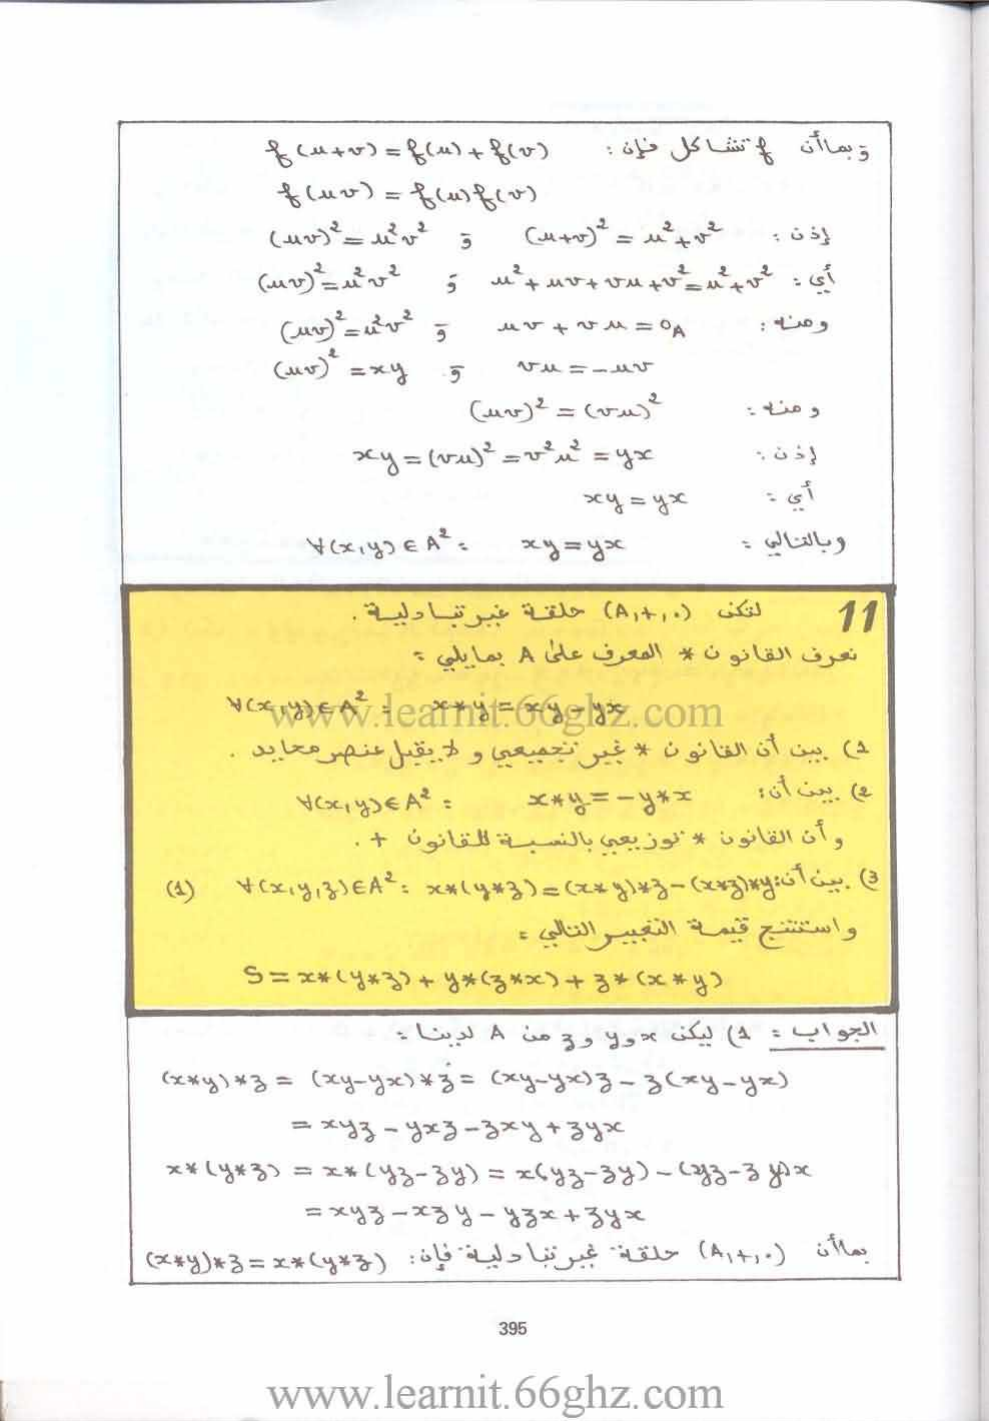 وبما أن f تشاكل فإن: f(u+v) = f(u) + f(v)
f(uv) = f(u)f(v)
إذن: (u+v)² = u²+v² و (uv)² = u²v²
أي: u²+uv+vu+v² = u²+v² و (uv)² = u²v²
ومنه: uv + vu = 0_A و (uv)² = u²v²
vu = -uv و (uv)² = xy
ومنه: (uv)² = (vu)²
إذن: xy = (vu)² = v²u² = yx
أي: xy = yx
وبالتالي: ∀(x,y)∈A²: xy = yx
11 لتكن (A,+,.) حلقة غير تبادلية.
نعرف القانون * المعرف على A بمايلي:
∀(x,y)∈A²: x*y = xy - yx
www.learnit.66ghz.com
1) بين أن القانون * غير تجميعي و لا يقبل عنصر محايد.
2) بين أن: ∀(x,y)∈A²: x*y = -y*x
وأن القانون * توزيعي بالنسبة للقانون +.
3) بين أن: ∀(x,y,z)∈A²: x*(y*z) = (x*y)*z - (x*z)*y (1)
واستنتج قيمة التعبير التالي:
S = x*(y*z) + y*(z*x) + z*(x*y)
الجواب: 1) ليكن x و y و z من A لدينا:
(x*y)*z = (xy-yx)*z = (xy-yx)z - z(xy-yx)
= xyz - yxz - zxy + zyx
x*(y*z) = x*(yz-zy) = x(yz-zy) - (yz-zy)x
= xyz - xzy - yzx + zyx
بما أن (A,+,.) حلقة غير تبادلية فإن: (x*y)*z = x*(y*z)
395
www.learnit.66ghz.com